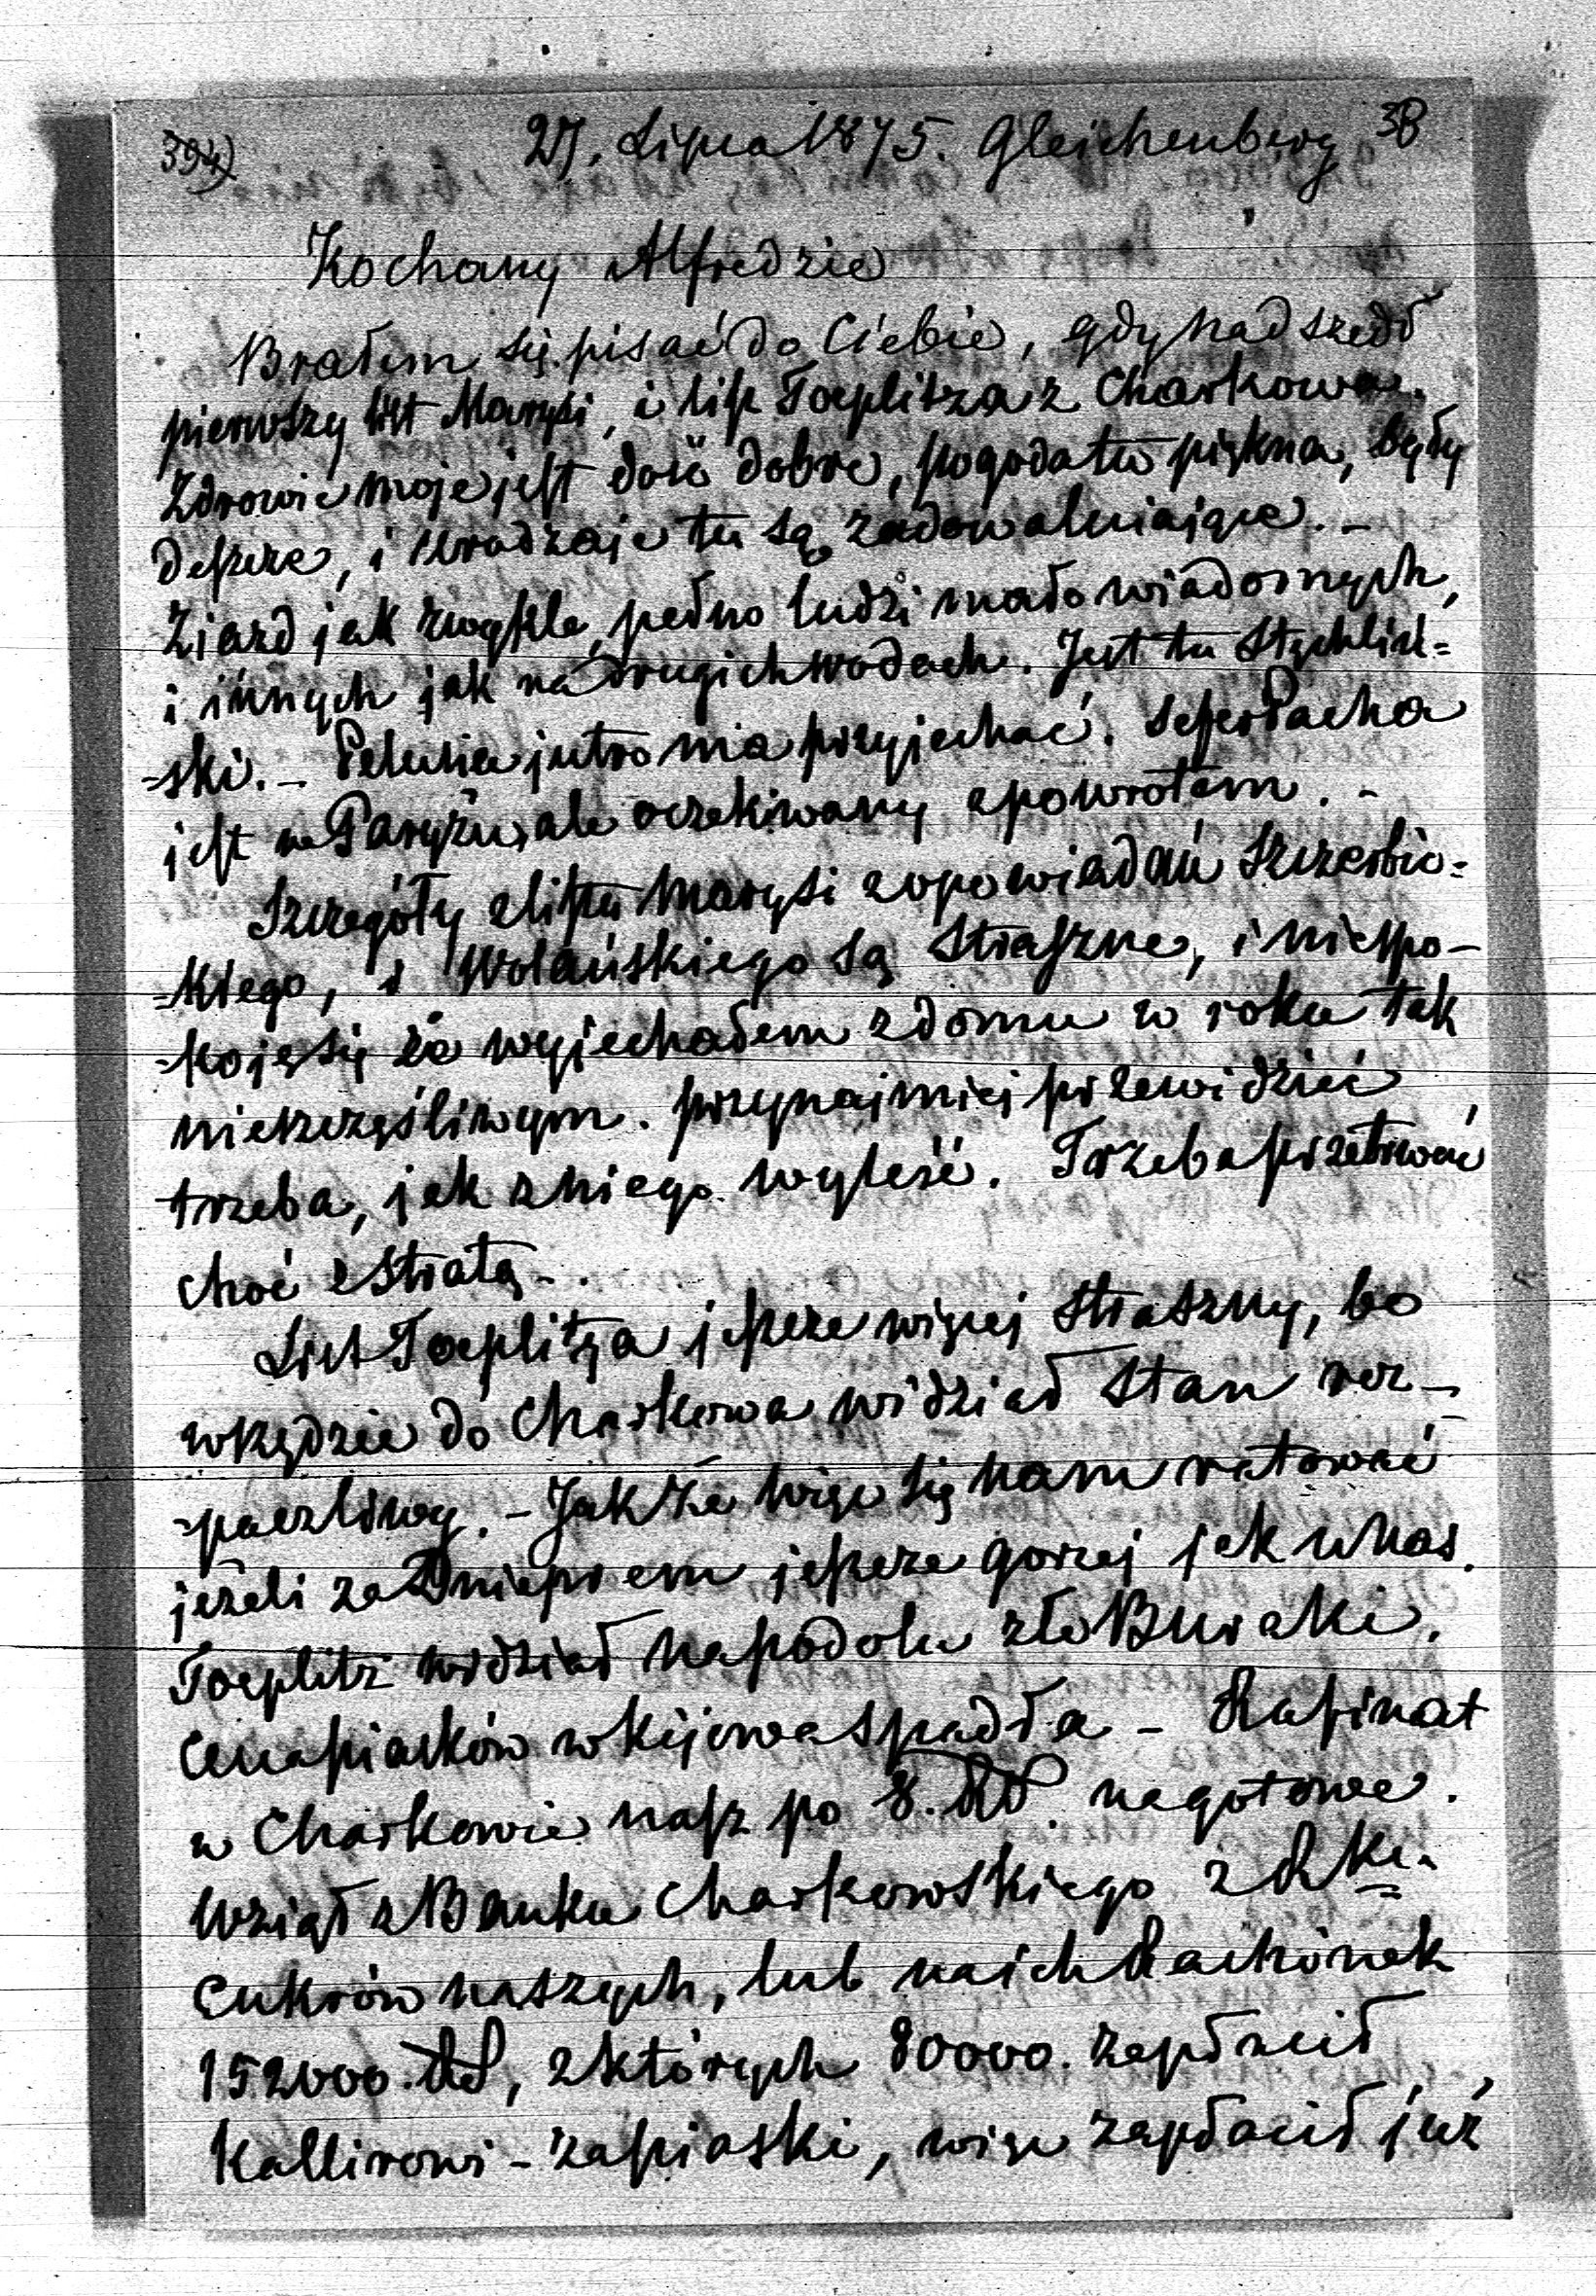 394) 27. Lipca 1875. Gleichenberg 38
Kochany Alfredzie
Brałem się pisać do Ciebie, gdy nadszedł
pierwszy list Marysi, i list Toeplitza z Charkowa.
Zdrowie moje jest dość dobre, pogoda tu piękna, były
deszcze, i urodzaje tu są zadowalniające. –
Zjazd jak zwykle, pełno ludzi mało wiadomych,
i innych jak na drugich wodach. Jest tu Stychliń=
=ski. – jutro ma przyjechać. Sefer Pacha
jest w Paryżu, ale oczekiwany z powrotem. –
Szczegóły z listu Marysi z opowiadań Szczerbic=
=kiego, i Wolańskiego są straszne, i niespo-
=koję się że wyjechałem z domu w roku tak
nieszczęśliwym. przynajmiej przewidzieć
trzeba, jak z niego wyleść. Trzeba przetrwać
choć z stratą – .
List Toeplitza jeszcze więcej straszny, bo
wszędzie do Charkowa widział stan roz-
=paczliwy. – Jakże więc się nam ratować
jeżeli za Dnieprem jeszcze gorzej jak u nas.
Toeplitz widział na podolu złe Buraki.
Cena piasków w Kijowie spadła – Rafinat
w Charkowie nasz po 8. RS. na gotowe.
Wziął z Banku Charkowskiego
Cukrów naszych, lub na ich Rachunek
152000. RS, z których 80000. zapłacił
Kallirowi – za piaski, więc zapłacił już